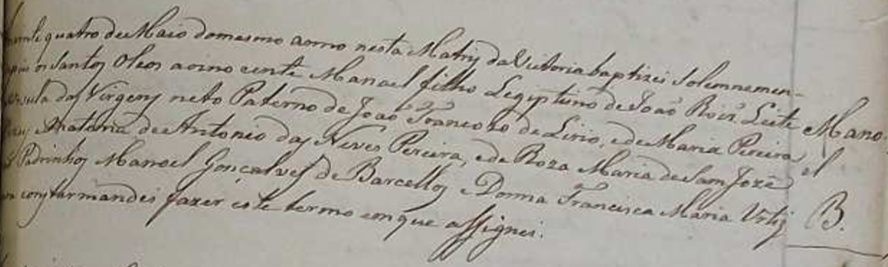 vinte quatro de Maio do mesmo anno nesta Matriz da Victoria baptizei Solemnemen-
os Santos Oleos ao inno cente Manoel filho Legiptimo de João Roiz Leite
Ursula das Virgens neto Paterno de João Francisco de Lirio, e de Maria Pereira
Materna de Antonio das Neves Pereira, e de Roza Maria de Sam Jozé
Padrinhos Manoel Gonçalves de Barcellos e Donna Francisca Maria
constar mandei fazer este termo em que assignei.
Mano-
el
B.